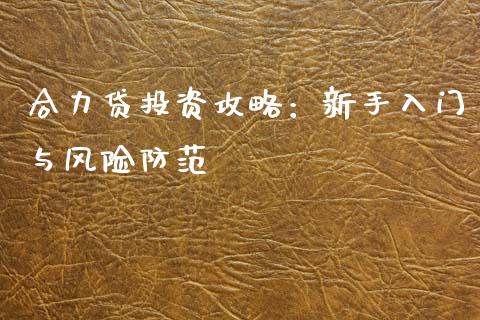 合力贷投资攻略：新手入门
与风险防范